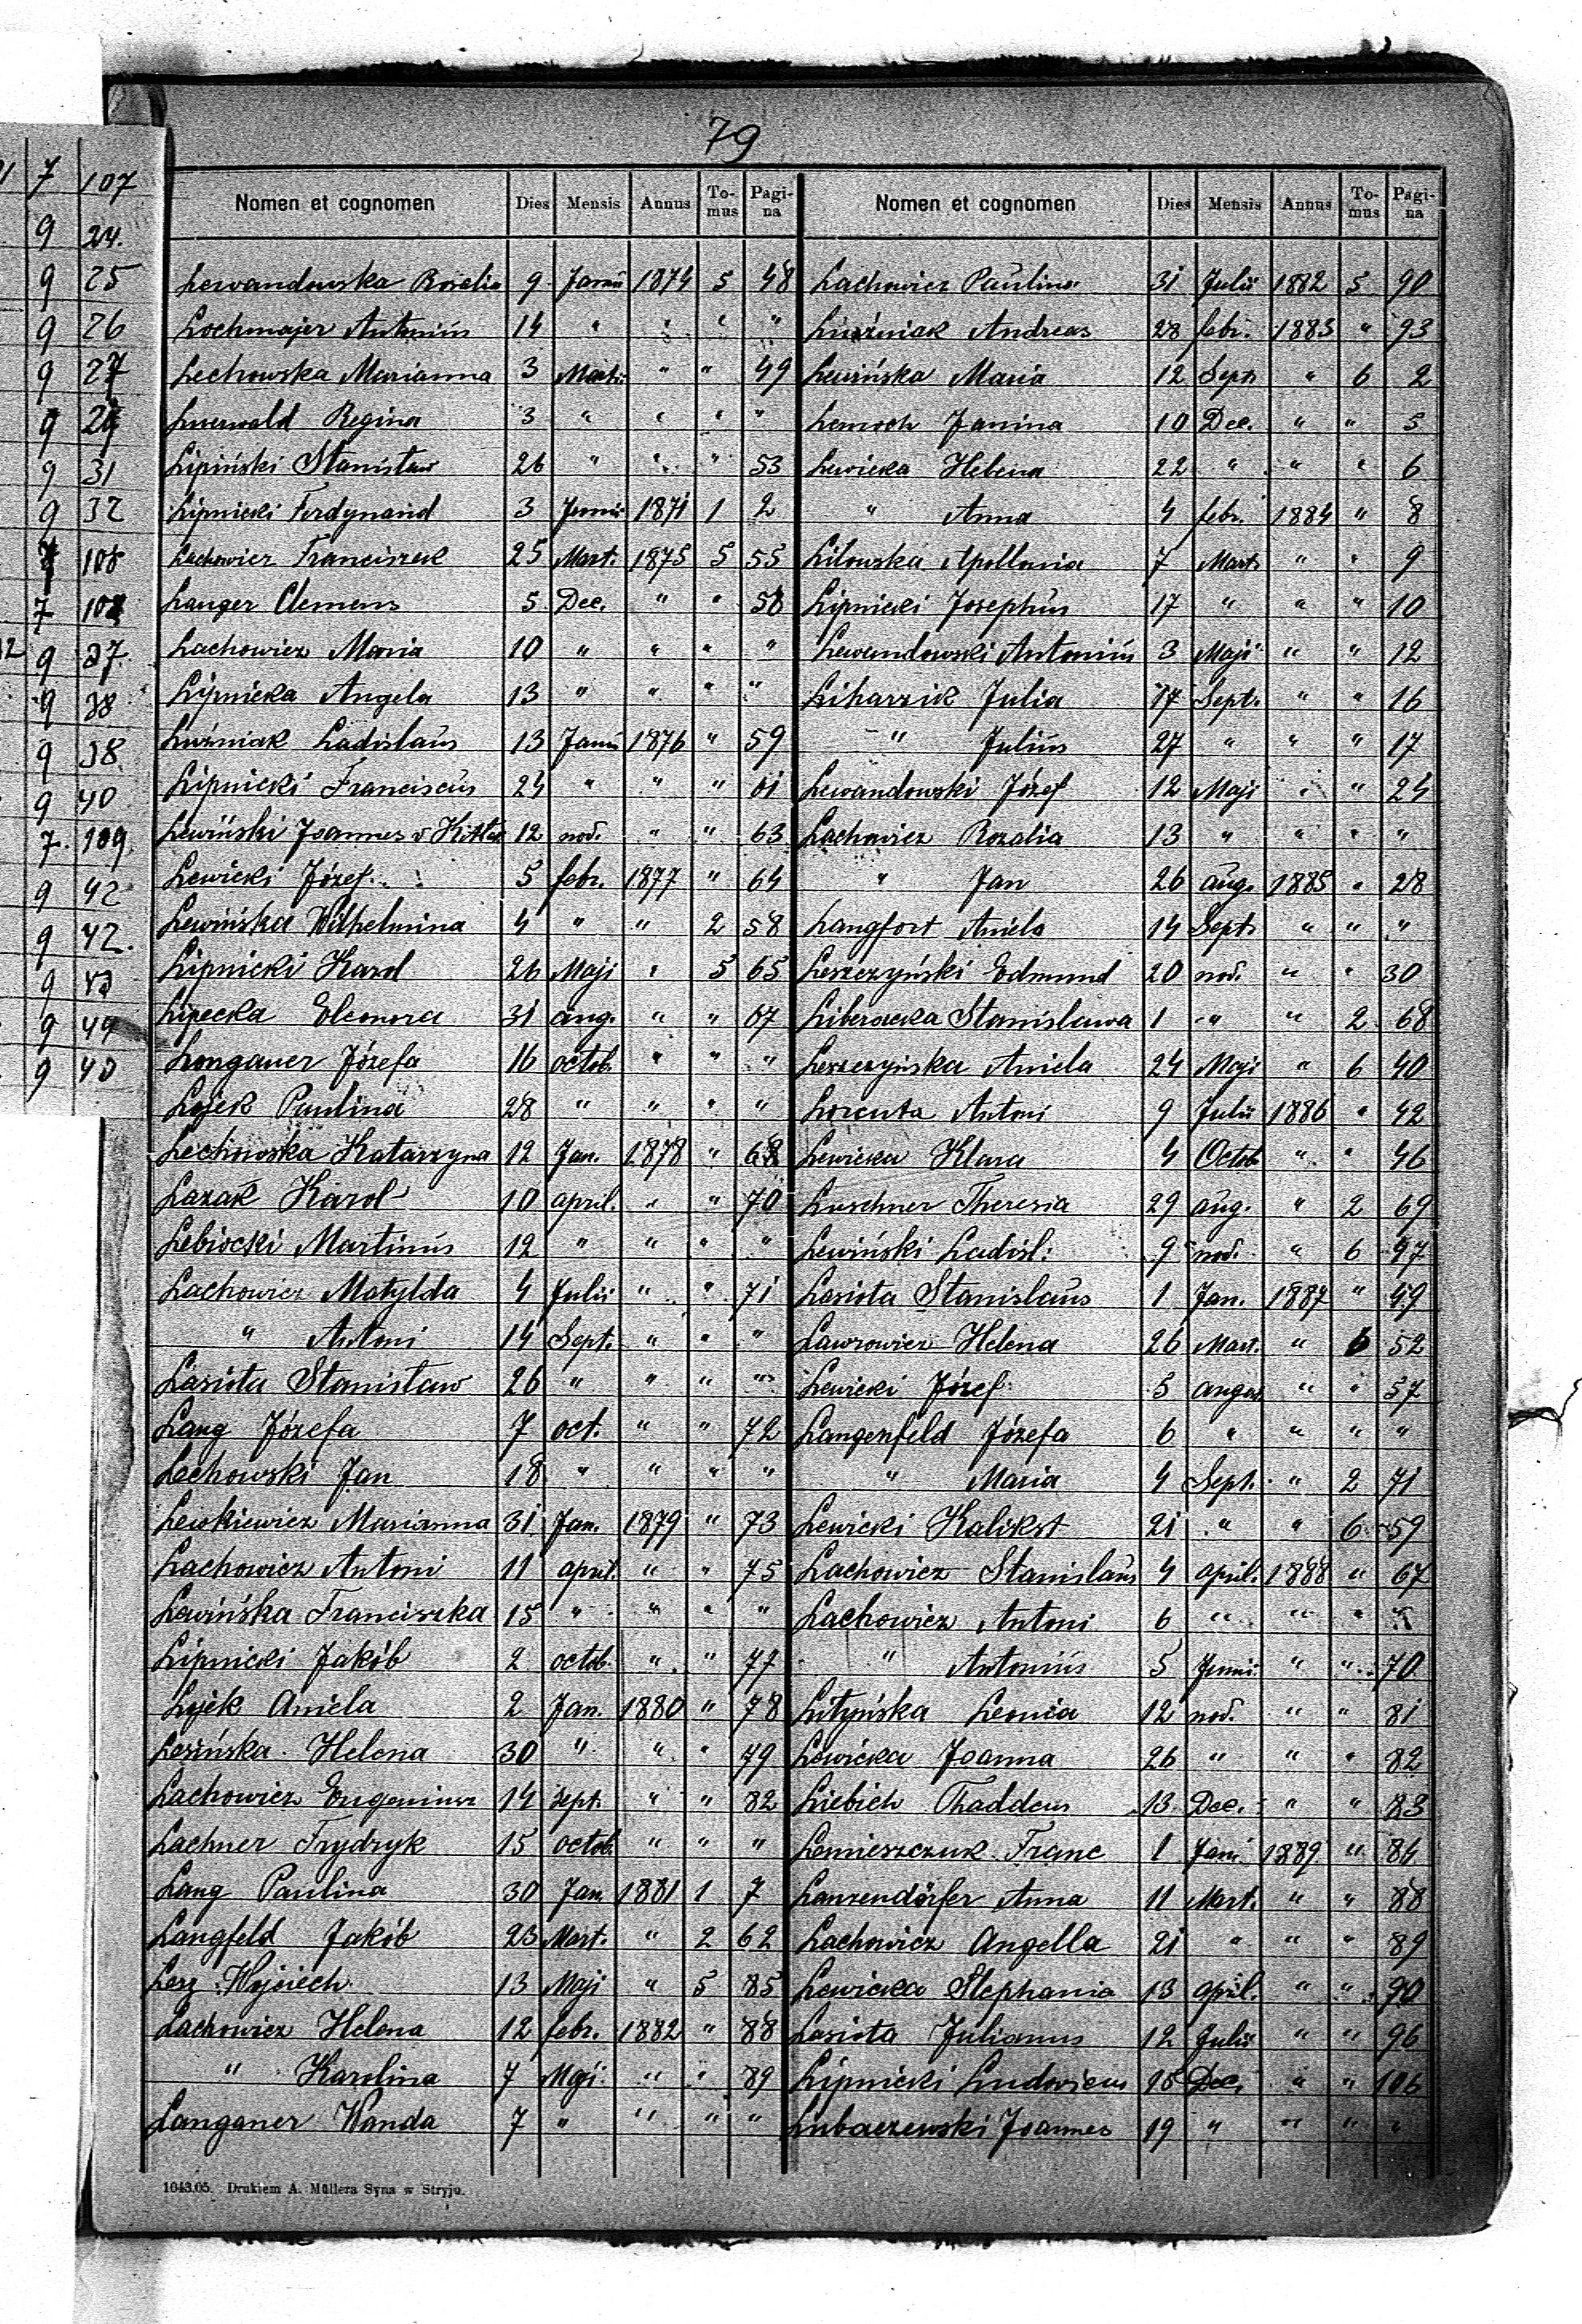 79
Nomen et cognomen Dies Mensis Annus To-mus Pagi-na
Lewandowska Rosalia 9 Janii 1874 5 48
Lochmajer Antoniüs 14 " " " "
Lechowska Marianna 3 Marti " " 49
Luerwald Regina 3 " " " "
Lipiński Stanisław 26 " " " 53
Lipnicki Ferdynand 3 Junii 1871 1 2
Lachowicz Franciszek 25 Mart. 1875 5 55
Langer Clemens 5 Dec. " " 58
Lachowicz Maria 10 " " " "
Lipnicka Angela 13 " " " "
Luźniak Ladislaüs 13 Janii 1876 " 59
Lipnicki Franciscüs 24 " " " 61
Lewiński Joannes v 12 nov. " " 63
Lewicki Józef 5 febr. 1877 " 64
Lewińska Wilhelmina 4 " " 2 58
Lipnicki Karol 26 Maji " 5 65
Lipecka Eleonora 31 aug. " " 67
Longauer Józefa 16 octob. " " "
Lojek Paulina 28 " " " "
Lechowska Katarzyna 12 Jan. 1878 " 68
Lazak Karol 10 april. " " 70
Lebiocki Martinüs 12 " " " "
Lachowicz Matylda 4 Julii " " 71
" Antoni 14 Sept. " " "
Lasiota Stanisław 26 " " " "
Lang Józefa 7 oct. " " 72
Lechowski Jan 18 " " " "
Lewkiewicz Marianna 31 Jan. 1879 " 73
Lachowicz Antoni 11 april. " " 75
Lewińska Franciszka 15 " " " "
Lipnicki Jakób 2 octob. " " 77
Lijek Aniela 2 Jan. 1880 " 78
Lesińska Helena 30 " " " 79
Lachowicz Eugeniusz 14 sept. " " 82
Lachner Frydryk 15 octob. " " "
Lang Paulina 30 Jan. 1881 1 7
Langfeld Jakób 23 Mart. " 2 62
Lesz Wojciech 13 Maji " 5 85
Lachowicz Helena 12 febr. 1882 " 88
" Karolina 7 Maji " " 89
Langaner Wanda 7 " " " "
Nomen et cognomen Dies Mensis Annus To-mus Pagi-na
Lachowicz Paulina 31 Julii 1882 5 90
Luźniak Andreas 28 febr. 1883 " 93
Lewińska Maria 12 Sept " 6 2
Lemoch Janina 10 Dec. " " 5
Lewicka Helena 22 " " " 6
" Anna 4 febr. 1884 " 8
Lilowska Apollonia 7 Marti " " 9
Lipnicki Josephüs 17 " " " 10
Lewandowski Antoniüs 3 Maji " " 12
Liharzik Julia 17 Sept. " " 16
" Juliüs 27 " " " 17
Lewandowski Józef 12 Maji " " 24
Lachowicz Rozalia 13 " " " "
" Jan 26 aug. 1885 " 28
Langfort Aniela 14 Sept " " "
Leszczyński Edmund 20 nov. " " 30
Liberacka Stanisława 1 " " 2 68
Leszczyńska Aniela 24 Maji " 6 40
Lorenta Antoni 9 Julii 1886 " 42
Lewicka Klara 4 Octob " " 46
Luschner Theresia 29 aug. " 2 69
Lewiński Ladisl: 9 nov. " 6 47
Lasiota Stanislaüs 1 Jan. 1887 " 49
Lawrowicz Helena 26 Mart. " 6 52
Lewicki Józef 5 august " " 57
Langenfeld Józefa 6 " " " "
" Maria 4 Sept. " 2 71
Lewicki Kalikst 21 " " 6 59
Lachowicz Stanislaüs 4 april. 1888 " 67
Lachowicz Antoni 6 " " " "
" Antoniüs 5 Junii " " 70
Lityńska Leonia 12 nov. " " 81
Lewicka Joanna 26 " " " 82
Liebich Thaddeus 13 Dec. " " 83
Lemieszczuk Franc 1 Jani 1889 " 86
Lanzendörfer Anna 11 Mart. " " 88
Lachowicz Angella 21 " " " 89
Lewicka Stephania 13 april. " " 90
Lasiota Julianus 12 Julii " " 96
Lipnicki Ludovicus 18 Dec. " " 106
Lubaczewski Joannes 19 " " " "
7 107
9 24.
9 25
9 26
9 27
9
9 31
9 32
108
7
9 37
9 38
9 38
9 40
7. 109
9 42
9 42.
9 43
9 49
9 40
1043.05. Drukiem A. Müllera Syna w Stryju.